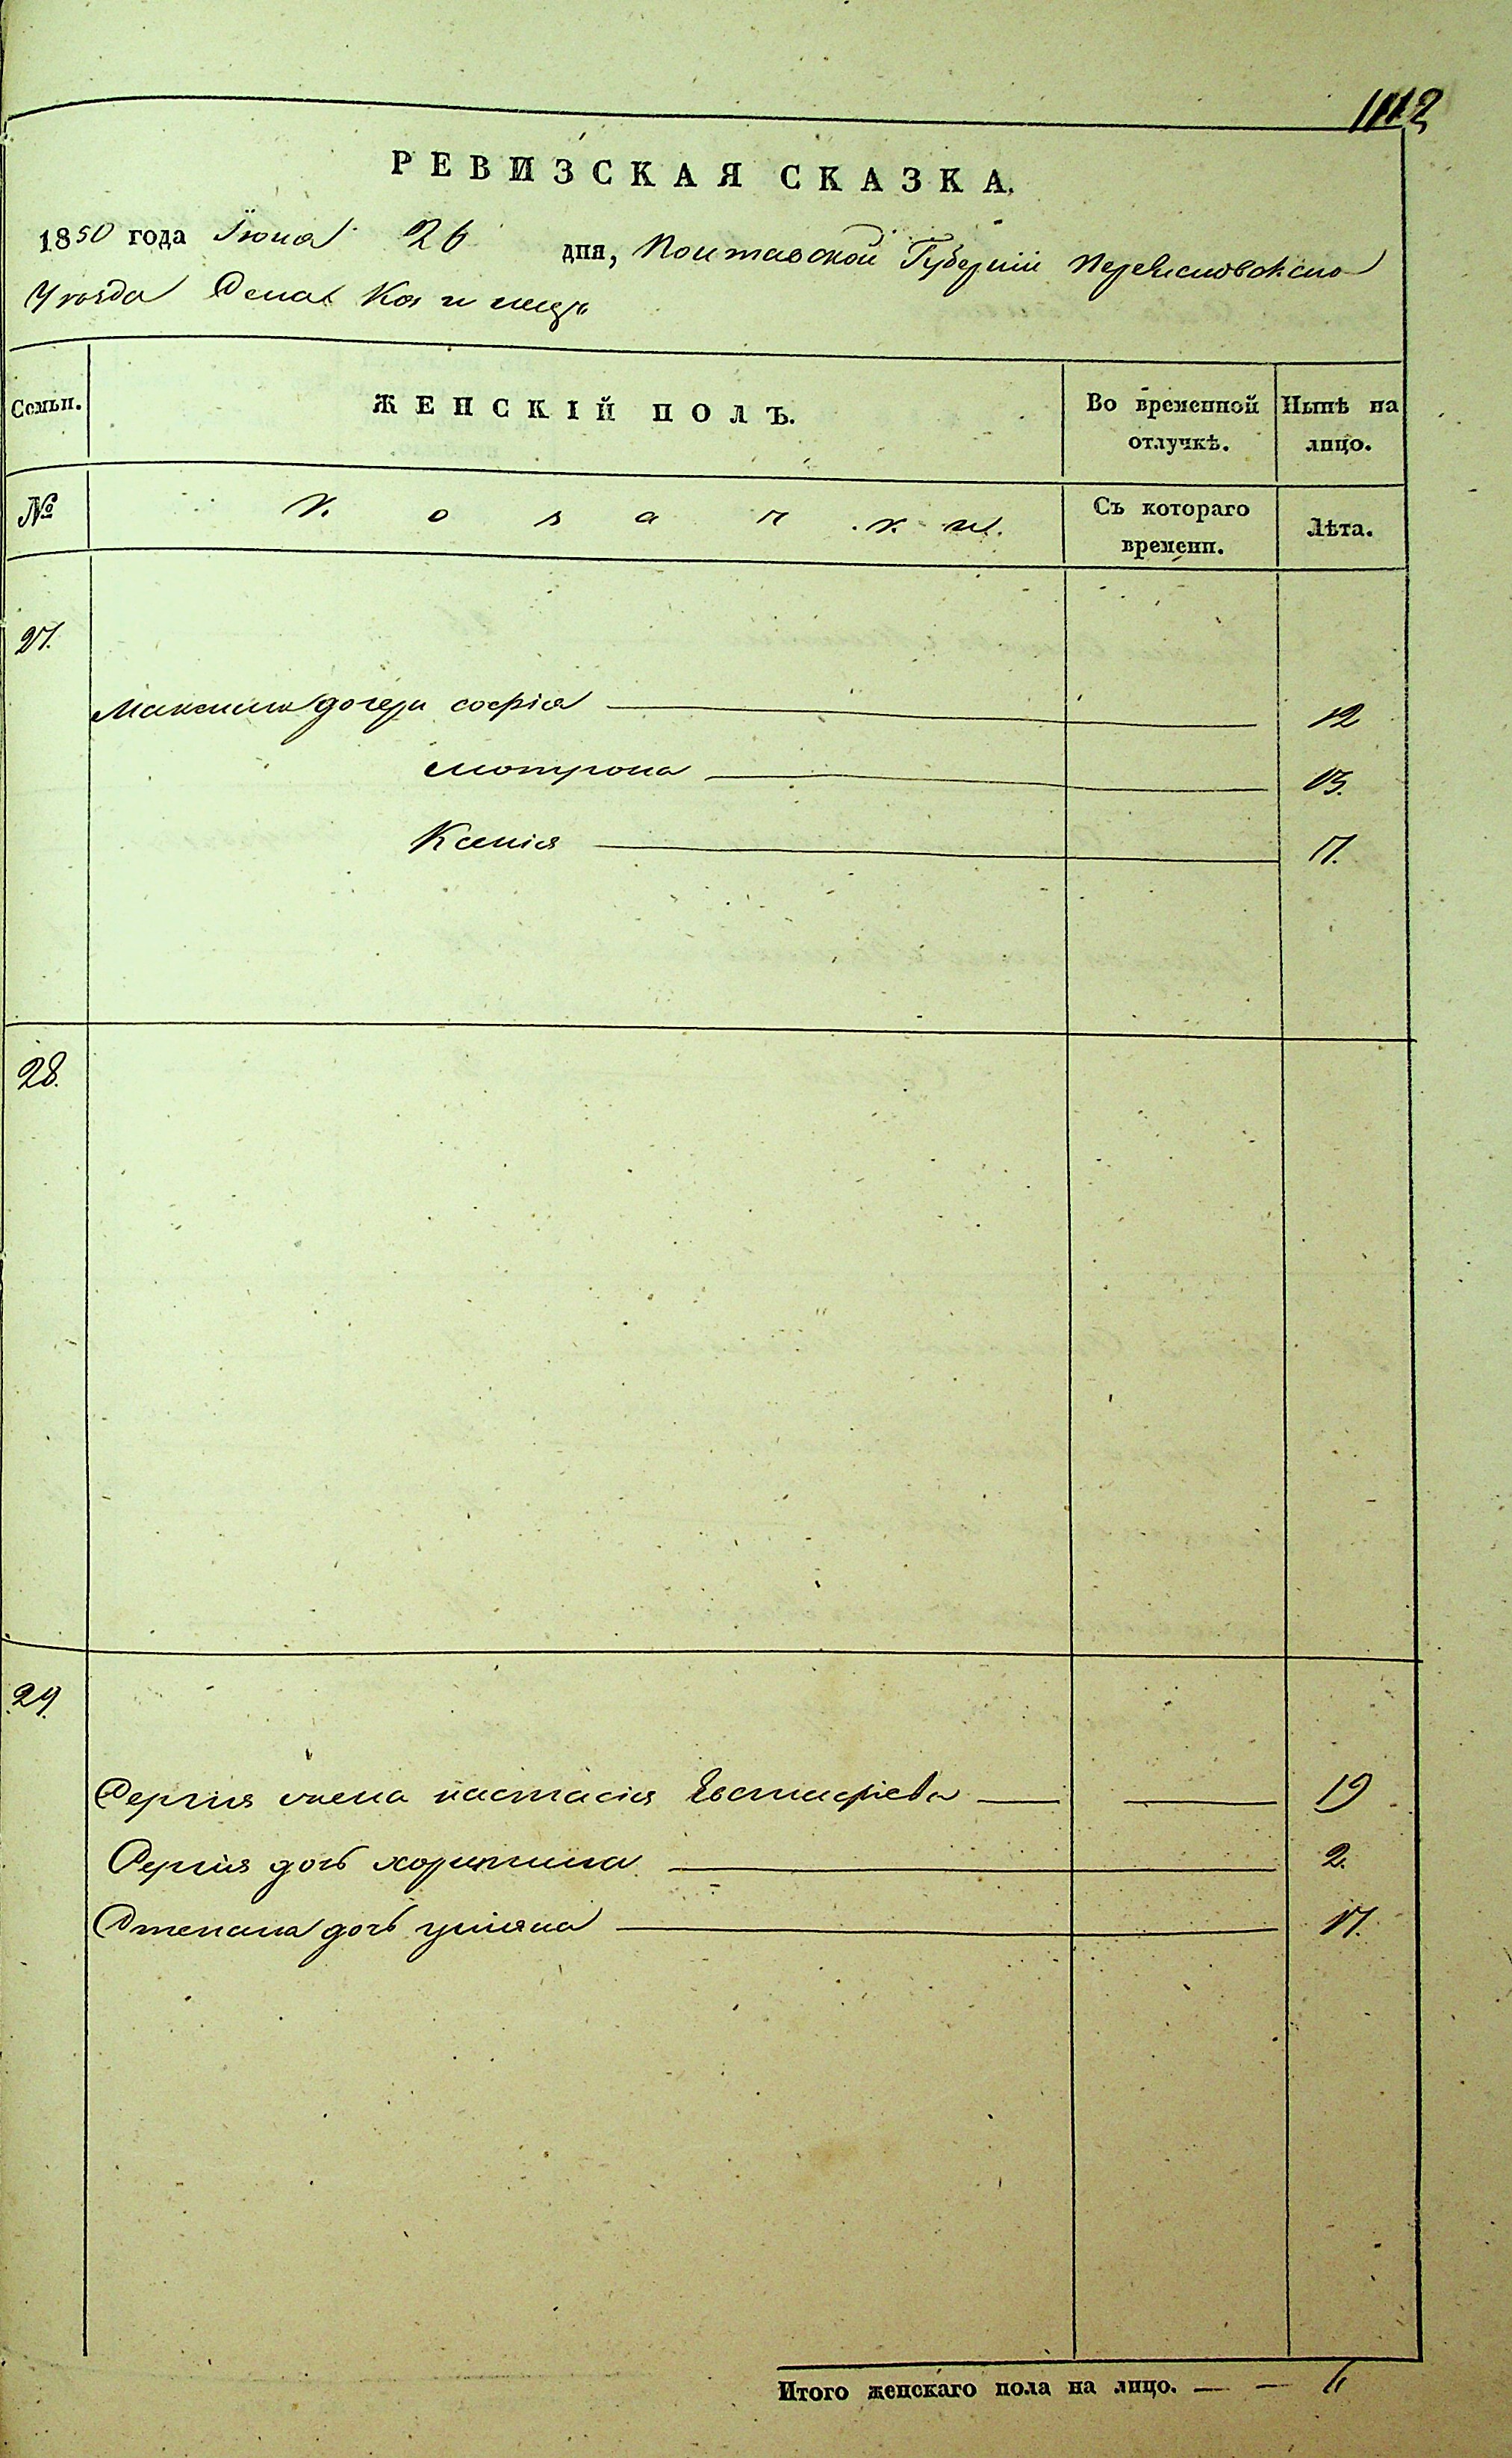 1112
РЕВИЗСКАЯ СКАЗКА.
1850 года Іюня 26 дня, Полтавской Губерніи Переясловского
Уѣзда Села
Семьи. ЖЕНСКІЙ ПОЛЪ. Во временной отлучкѣ. Нынѣ на лицо.
№ Козачки. Съ котораго времени. Лѣта.
27.
Максима дочери софія 12
мотрона 13.
Ксенія 17.
28.
29.
Сергія жена настасія Евстафіева 19
Сергія дочь хоритина 2.
Степана дочь уліяна 17.
Итого женскаго пола на лицо. — — 6